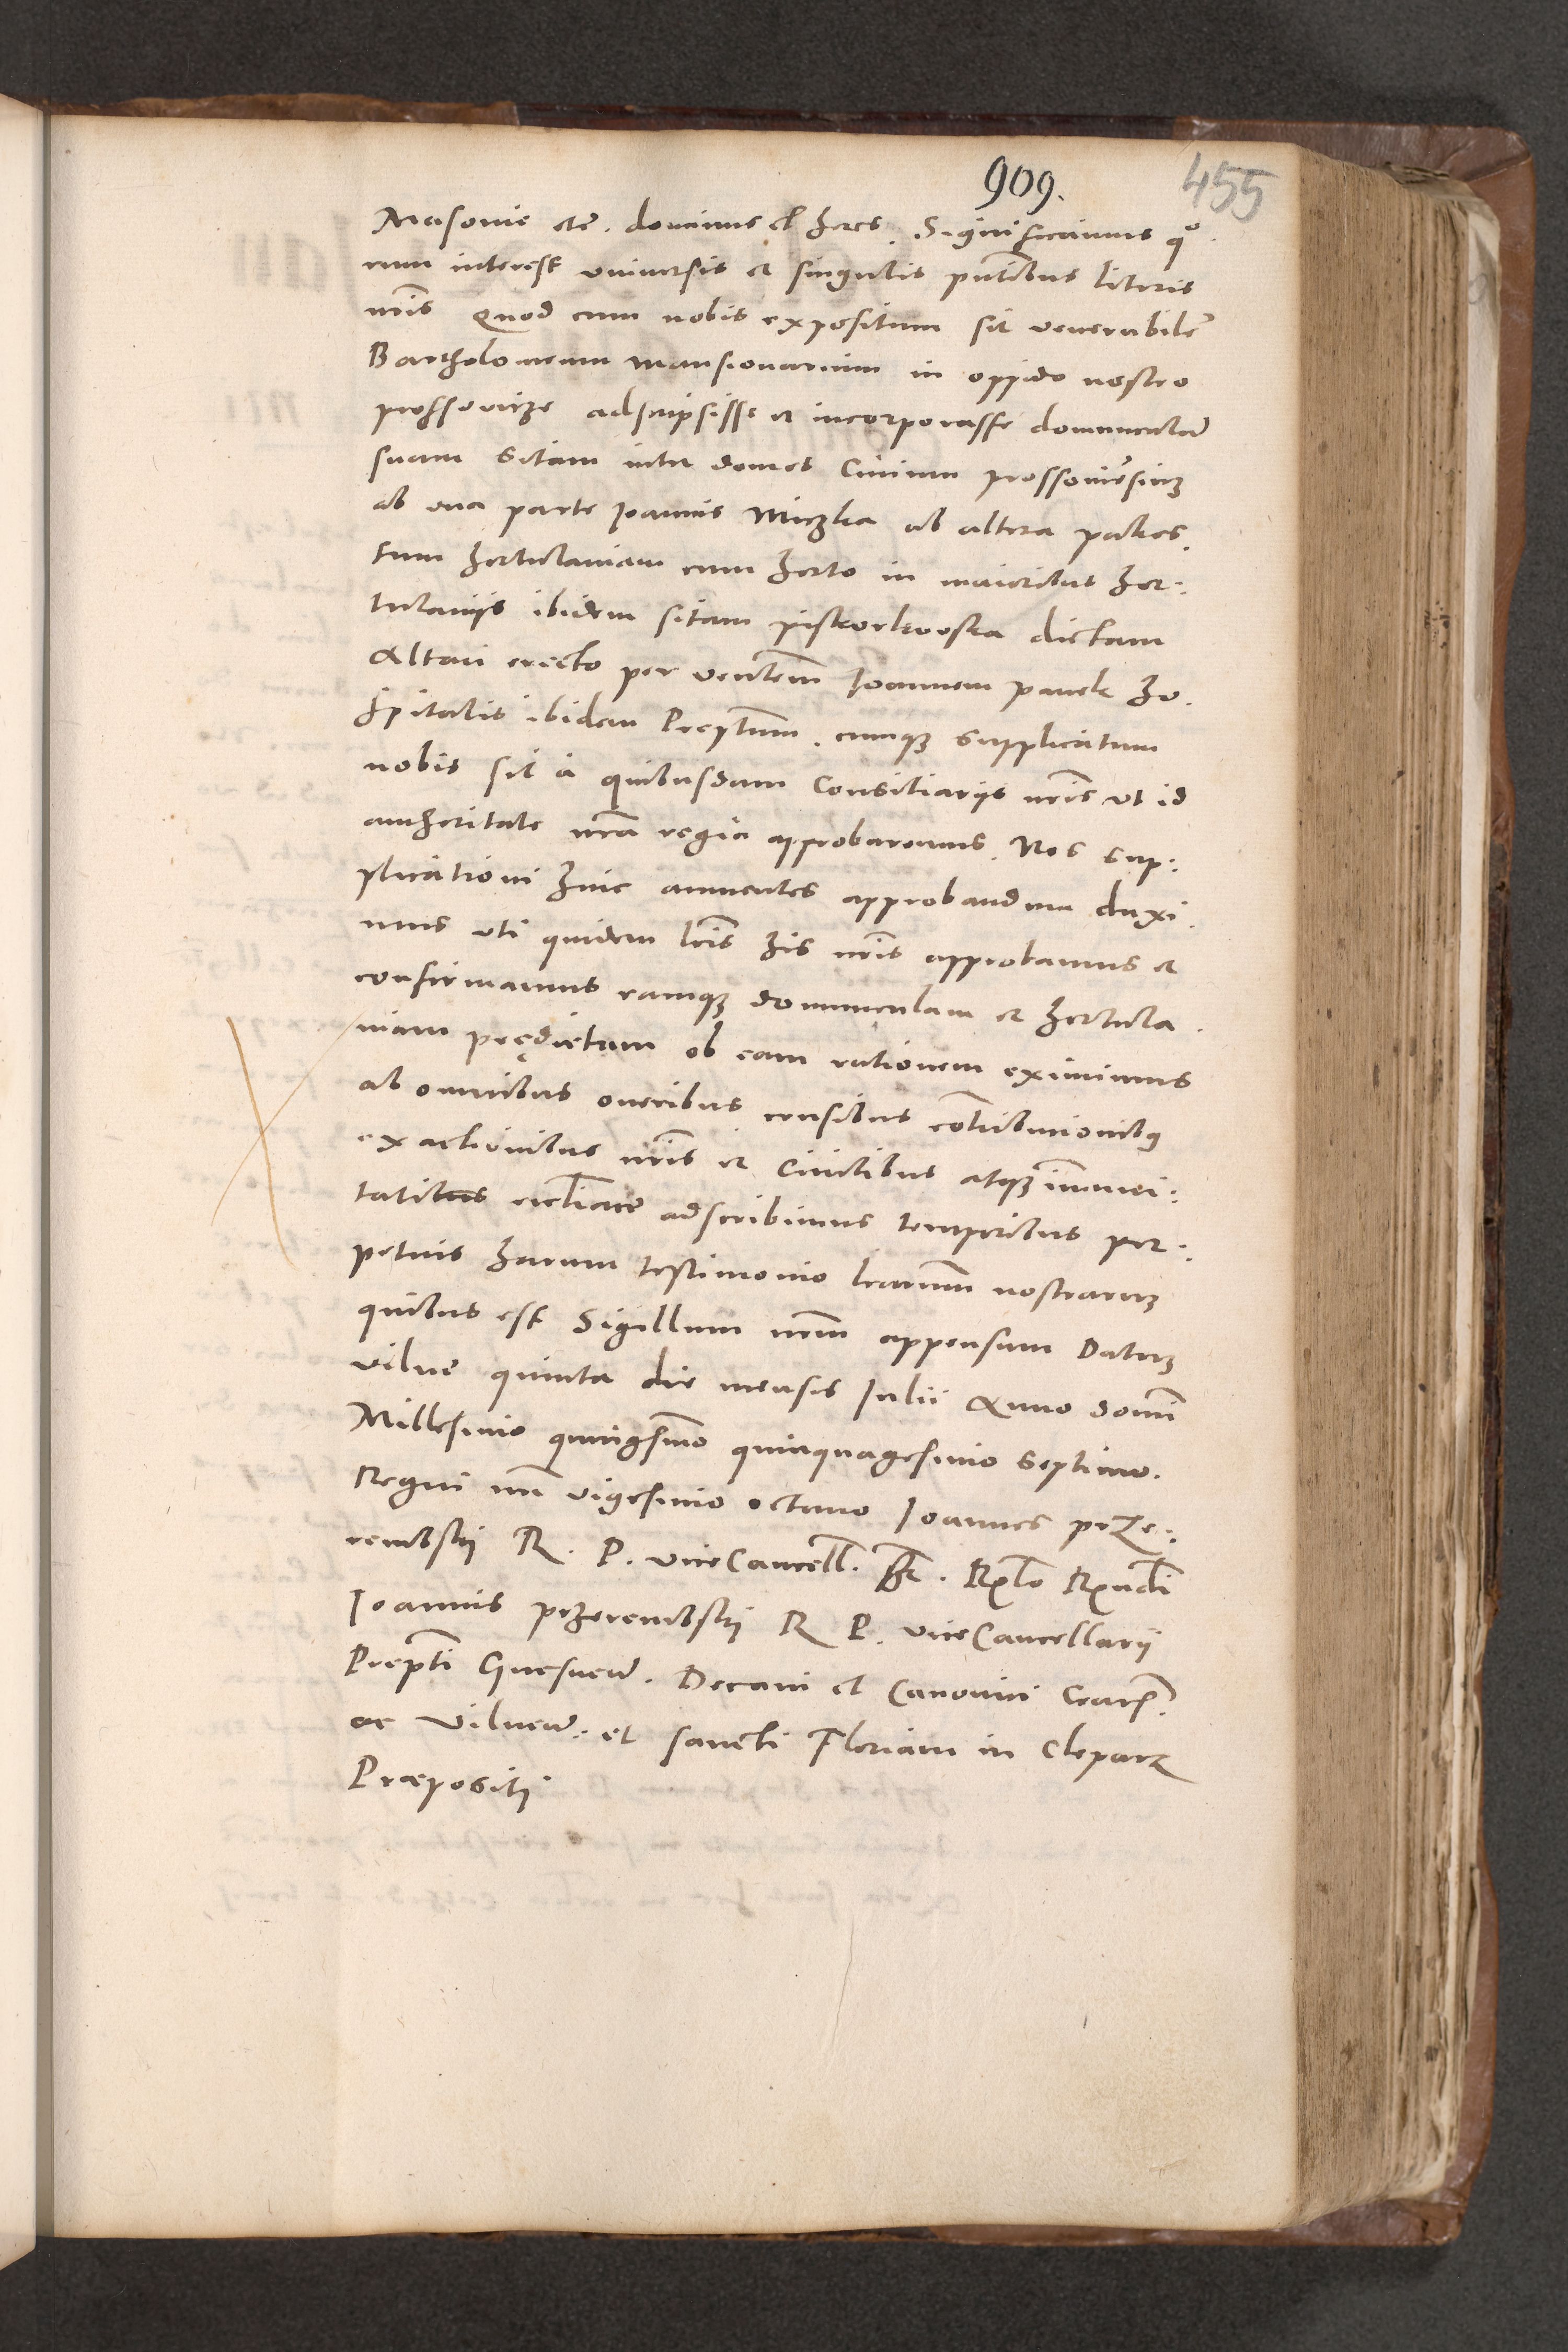 909.
455
Masovie etc. dominus et heres. Significamus quo
rum interest universis et singulis pntibus literis
nris Quod cum nobis expositum sit venerabilem
Bartholomeum mansionarium in oppido nostro
prossovicze adscripsisse et incorporasse domunculam
suam Sitam inter domos Civium prossoviensium
ab una parte Ioannis Miczka ab altera
tum hortulaniam cum horto in maioribus hor:
tulaniis ibidem sitam piskorkovska dictam
Altari erecto per ventem Ioannem pavek ho
spitalis ibidem Preptum. cumque supplicatum
nobis sit à quibusdam Consiliariis nris ut id
authoritate nra regia approbaremus. Nos sup:
plicationi huic annuentes approbandum duxi
mus uti quidem lris his nris approbamus et
confirmamus eamque domunculam et hortula
niam prędictam ob eam rationem eximimus
ab omnibus oneribus censibus contributionibus
exactionibus nris et Civilibus atque immuni:
tati eccliace adscribimus temporibus per:
petuis harum testimonio lrarum nostrarum
quibus est Sigillum nrum appensum Datum
vilne quinta die mensis Iulii Anno domini
Millesimo quingesimo quinquagesimo septimo.
Regni nri vigesimo octavo Ioannes prze:
rembskij R. P. viceCancell. sst. Rlo Rndi
Ioannis przerembskij R P. viceCancellarij
Prepti Gnesnen. Decani et Canonici Crac
ac vilnen. et sancti Floriani in Cleparz
Praepositi